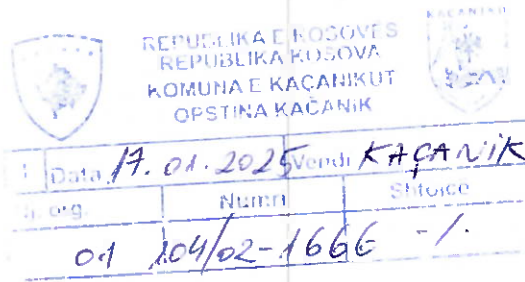 KAÇANIKUT
REPUBLIKA E KOSOVËS
REPUBLIKA KOSOVA
KOMUNA E KAÇANIKUT
OPŠTINA KAČANIK
Data 17.01.2025 Vendi KAÇANIK
org. Numri Shtojcë
01 104/02-1666 -/.